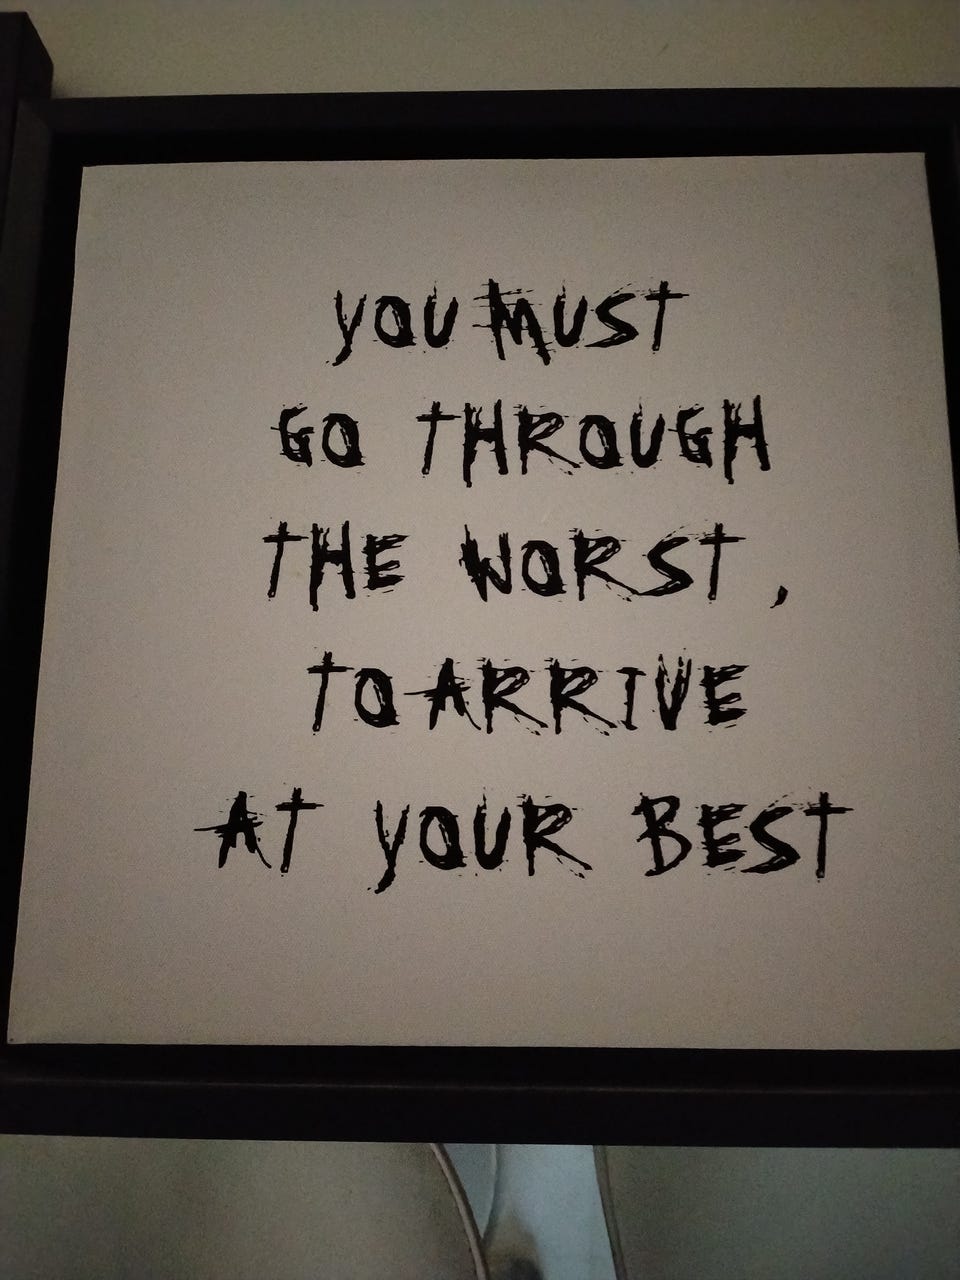 YOU MUST
GO THROUGH
THE WORST,
TO ARRIVE
AT YOUR BEST